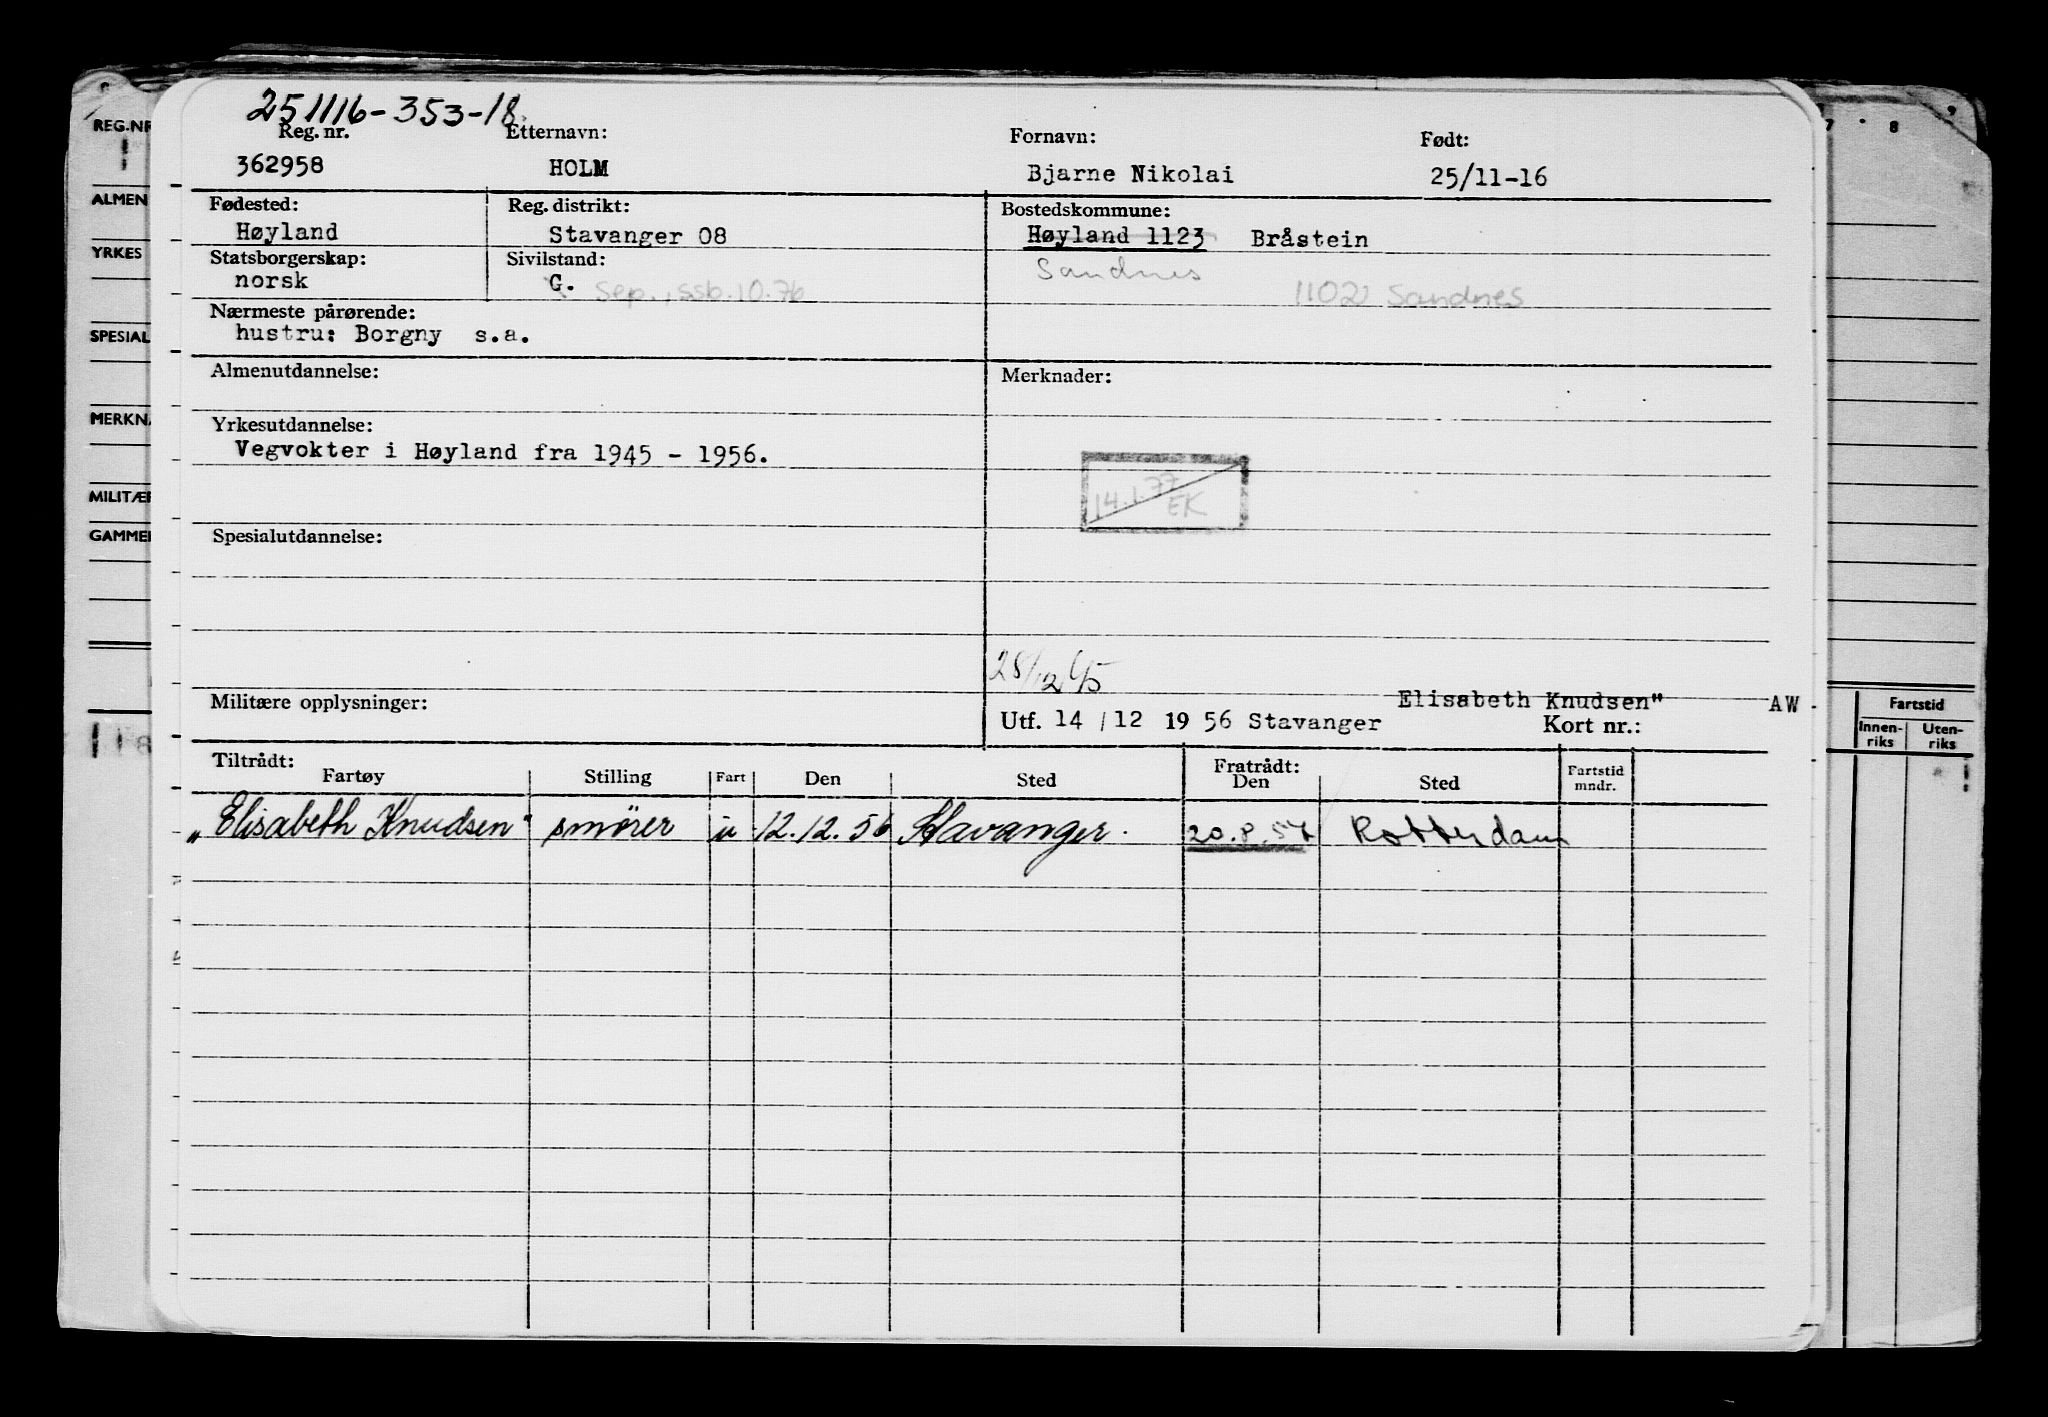 251116-353-18.
Reg. nr. Etternavn: Fornavn: Født:
362958 HOLM Bjarne Nikolai 25/11-16
Fødested: Reg. distrikt: Bostedskommune:
Høyland Stavanger 08 Høyland 1123 Bråstein
Statsborgerskap: Sivilstand: Sandnes
norsk G. Sep., ssb.10.76 1102 Sandnes
Nærmeste pårørende:
hustru: Borgny s.a.
Almenutdannelse: Merknader:
Yrkesutdannelse:
Vegvokter i Høyland fra 1945 - 1956.
14.1.77
EK
Spesialutdannelse:
Militære opplysninger: Elisabeth Knudsen" AW
Utf. 14 / 12 19 56 Stavanger Kort nr.:
Tiltrådt: Fratrådt:
Fartøy Stilling Fart Den Sted Den Sted Fartstid
mndr.
„Elisabeth Knudsen" smører u 12.12.56 Stavanger. 20.8.57 Rotterdam
REG.NR
ALMEN
YRKES
SPESIAL
MERKNA
MILITÆR
GAMMEL
7 8 9
Fartstid
Innen-
riks
Uten-
riks